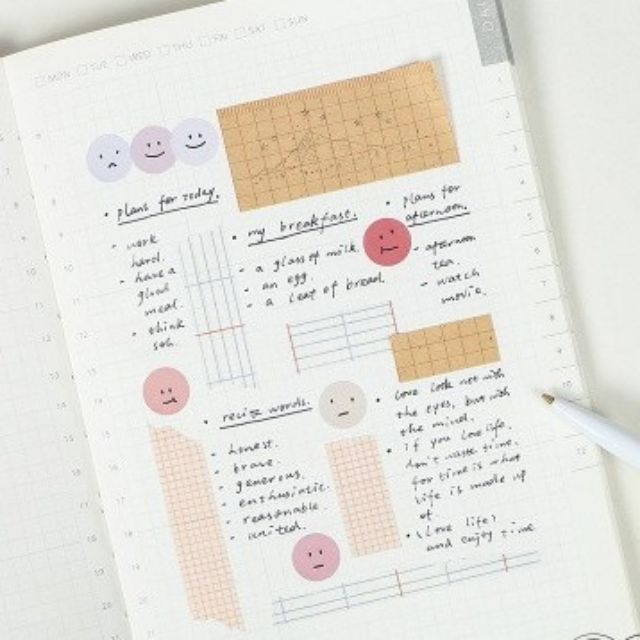 MON TUE WED THU FRI SAT SUN
• plans for today.
• work
hard.
• have a
good
meal.
• think
• my breakfast.
- a glass of milk.
- an egg.
- a loaf of bread.
• plans for
afternoon.
- afternoon
tea.
- watch
movie.
• recite words.
- honest.
- brave.
- generous.
- enthusiastic.
- reasonable.
- united.
• Love look not with
the eyes, but with
the mind.
• if you love life,
don't waste time,
for time is what
life is made up
of.
• Love life?
and enjoy time